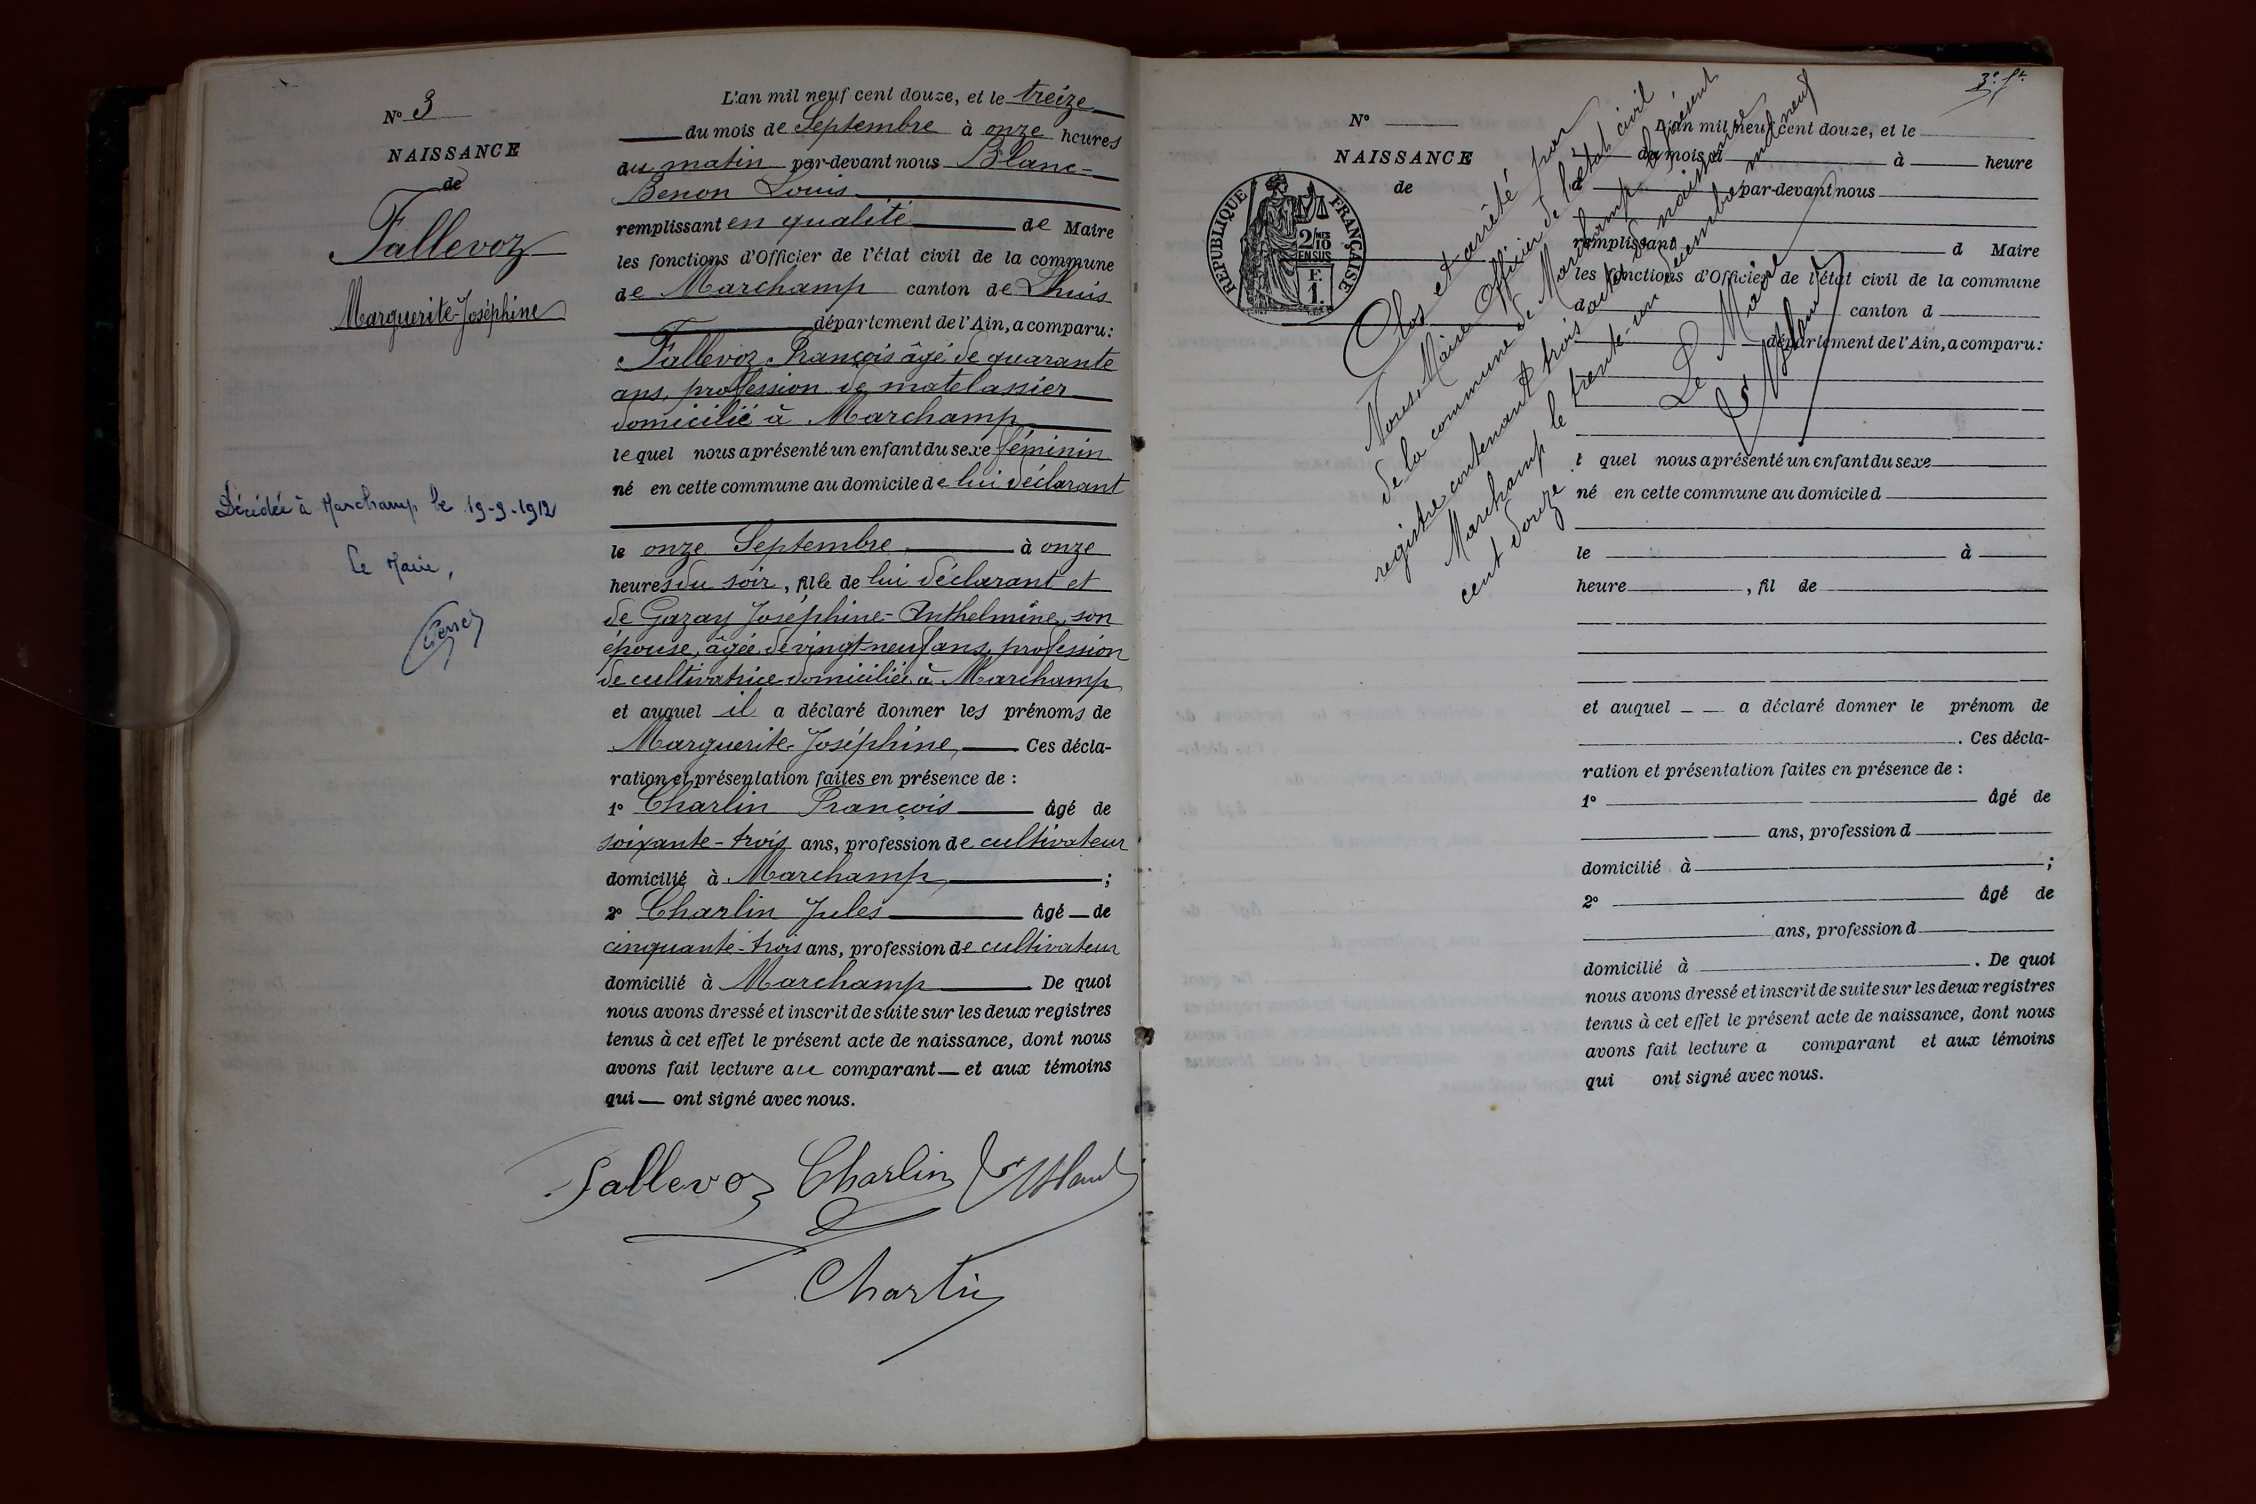 N° 3
NAISSANCE
de
Fallevoz
Marguerite-Joséphine
Décédée à Marchamp le 19-9-1912
Le Maire,
L'an mil neuf cent douze, et le treize
du mois de Septembre à onze heures
du matin par-devant nous Blanc-
Benon Louis
remplissant en qualité de Maire
les fonctions d'Officier de l'état civil de la commune
de Marchamp canton de Lhuis
département de l'Ain, a comparu:
Fallevoz François âgé de quarante
ans, profession de matelassier
domicilié à Marchamp
lequel nous a présenté un enfant du sexe féminin
né en cette commune au domicile de lui déclarant
le onze Septembre à onze
heures du soir, fille de lui déclarant et
de Gazay Joséphine-Anthelmine, son
épouse, âgée de vingt-neuf ans, profession
de cultivatrice domiciliée à Marchamp
et auquel il a déclaré donner les prénoms de
Marguerite-Joséphine, Ces décla-
ration et présentation faites en présence de :
1° Charlin François âgé de
soixante-trois ans, profession de cultivateur
domicilié à Marchamp ;
2° Charlin Jules âgé de
cinquante-trois ans, profession de cultivateur
domicilié à Marchamp. De quoi
nous avons dressé et inscrit de suite sur les deux registres
tenus à cet effet le présent acte de naissance, dont nous
avons fait lecture au comparant et aux témoins
qui ont signé avec nous.
Fallevoz Charlin Ls Blanc
Charlin
3e ft.
N°
NAISSANCE
de
RÉPUBLIQUE FRANÇAISE
2/10 EN SUS
F.
1.
Clos et arrêté par
Nous, Maire Officier de l'état civil
de la commune de Marchamp le présent
registre contenant trois actes de naissance
Marchamp le trente-un décembre mil neuf
cent douze
Le Maire
Ls Blanc
L'an mil neuf cent douze, et le
du mois d à heure
d par-devant nous
remplissant d Maire
les fonctions d'Officier de l'état civil de la commune
d canton d
département de l'Ain, a comparu:
l quel nous a présenté un enfant du sexe
né en cette commune au domicile d
le à
heure , fil de
et auquel a déclaré donner le prénom de
. Ces décla-
ration et présentation faites en présence de :
1° âgé de
ans, profession d
domicilié à ;
2° âgé de
ans, profession d
domicilié à . De quoi
nous avons dressé et inscrit de suite sur les deux registres
tenus à cet effet le présent acte de naissance, dont nous
avons fait lecture a comparant et aux témoins
qui ont signé avec nous.